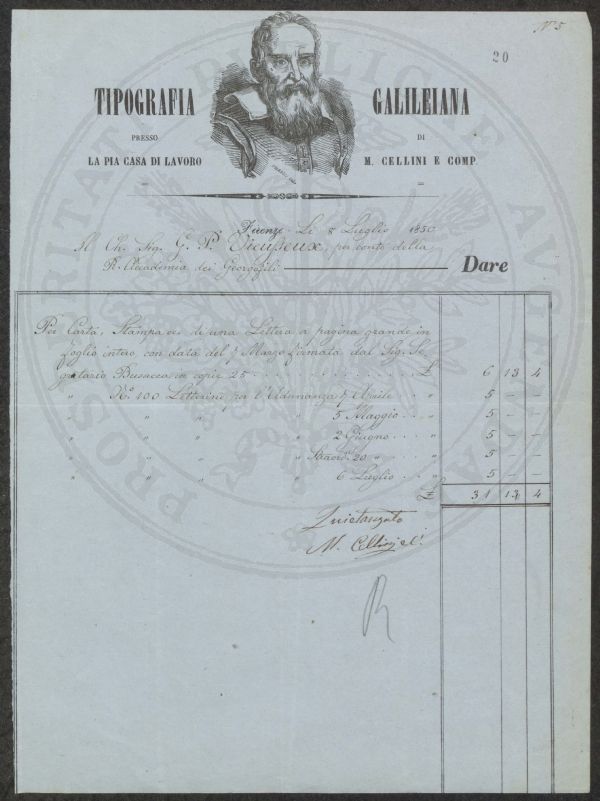 N° 5
20
TIPOGRAFIA GALILEIANA
PRESSO DI
LA PIA CASA DI LAVORO M. CELLINI E COMP.
Firenze Li 8 Luglio 1850
Il Ch. Sig. G. P. Vieusseux, per conto della
R. Accademia dei Georgofili Dare
Per Carta, Stampa ec. di una Lettera a pagina grande in
foglio intero, con data del Marzo firmata dal Sig. Se-
gretario Busacca in copie 25 £ 6 13 4
" N.° 100 Letterini per l'Adunanza 7 Aprile " 5 – –
" " " " 5 Maggio " 5 – –
" " " " 2 Giugno " 5 – –
" Straord. 20 " " 5 – –
" " " " 6 Luglio " 5 – –
£ 31 13 4
Quietanzato
M. Cellini e C.
R
PROSPERITATI PUBLICAE AUGENDAE